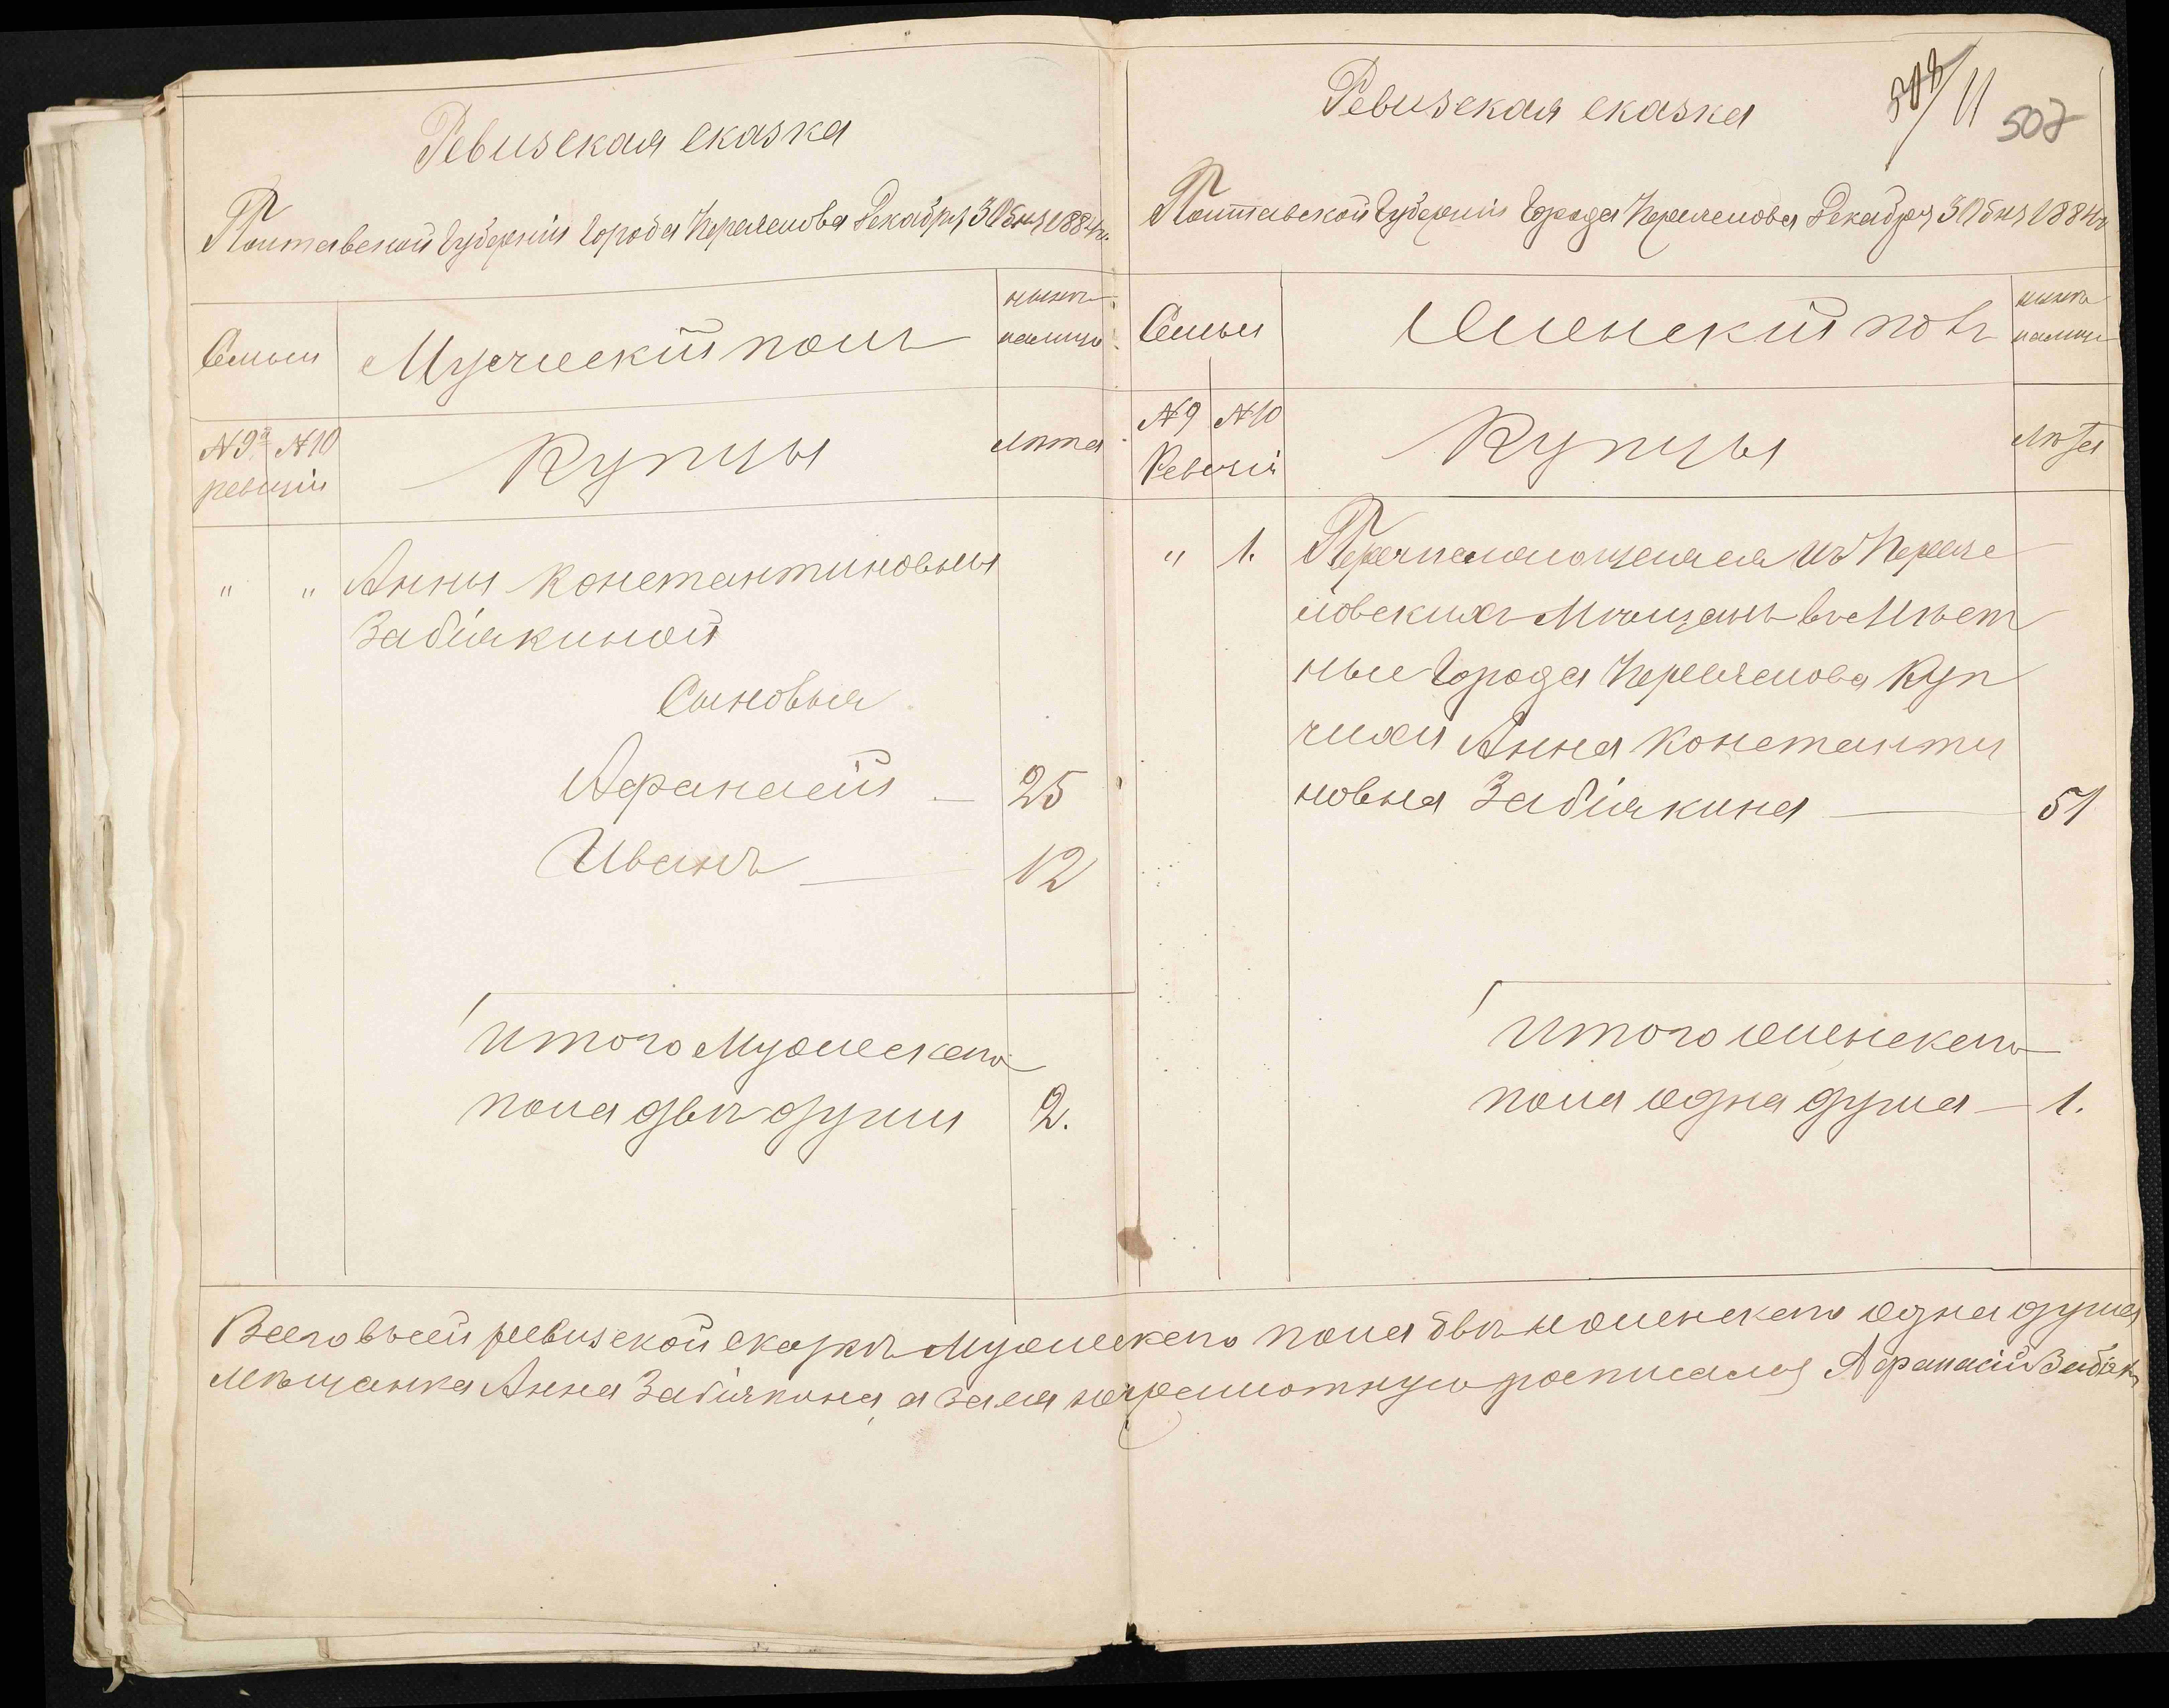 Ревизская сказка
Полтавской Губерніи города Кременчова Декабря 31 дня 1884 г.
Семьи
Мужескій полъ
нынѣ
налицо
№ 9й № 10
ревизіи
Купцы
лѣта
" " Анны Константиновны
Забіякиной
Сыновья
Афанасій — 25
Иванъ — 12
Итого Мужескаго
пола двѣ души 2.
Ревизская сказка
508/11 507
Полтавской Губерніи Города Кременчова Декабря 31 дня 1884 г
Семьи
Женскій полъ
нынѣ
налицо
№ 9 № 10
Ревизіи
Купцы
лѣта
" 1. Перечисляющаяся изъ Кременчу
новскихъ Мѣщанъ въ Мѣст
ные Города Кременчова Куп
чихи Анна Константи
новна Забіякина — 51
Итого женскаго
пола одна душа — 1.
Всего въ сей ревизской сказкѣ Мужескаго пола двѣ и женскаго одна душа
Мѣщанка Анна Забіякина, а за нея неграмотную росписался Афанасій Забіяк